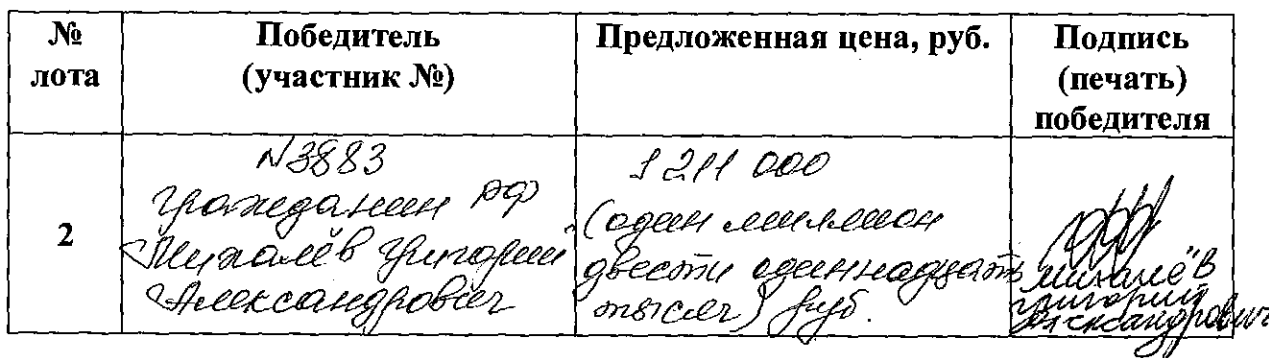 № лота
Победитель
(участник №)
Предложенная цена, руб.
Подпись
(печать)
победителя
2
N3883
гражданин РФ
Михалёв Григорий
Александрович
1 211 000
(один миллион
двести одиннадцать
тысяч) руб.
Михалёв
Григорий
Александрович